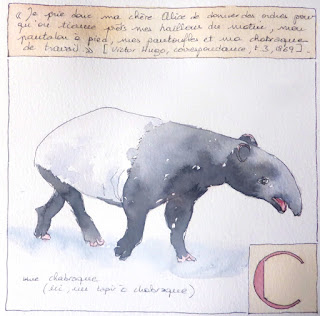 « Je prie donc ma chère Alice de donner des ordres pour
qu'on trouve prêts mes haillons du matin, mon
pantalon à pied, mes pantoufles et ma chabraque
de travail. » [Victor Hugo, correspondance, t. 3, 1869].
une chabraque
(ici, un tapir à chabraque)
C